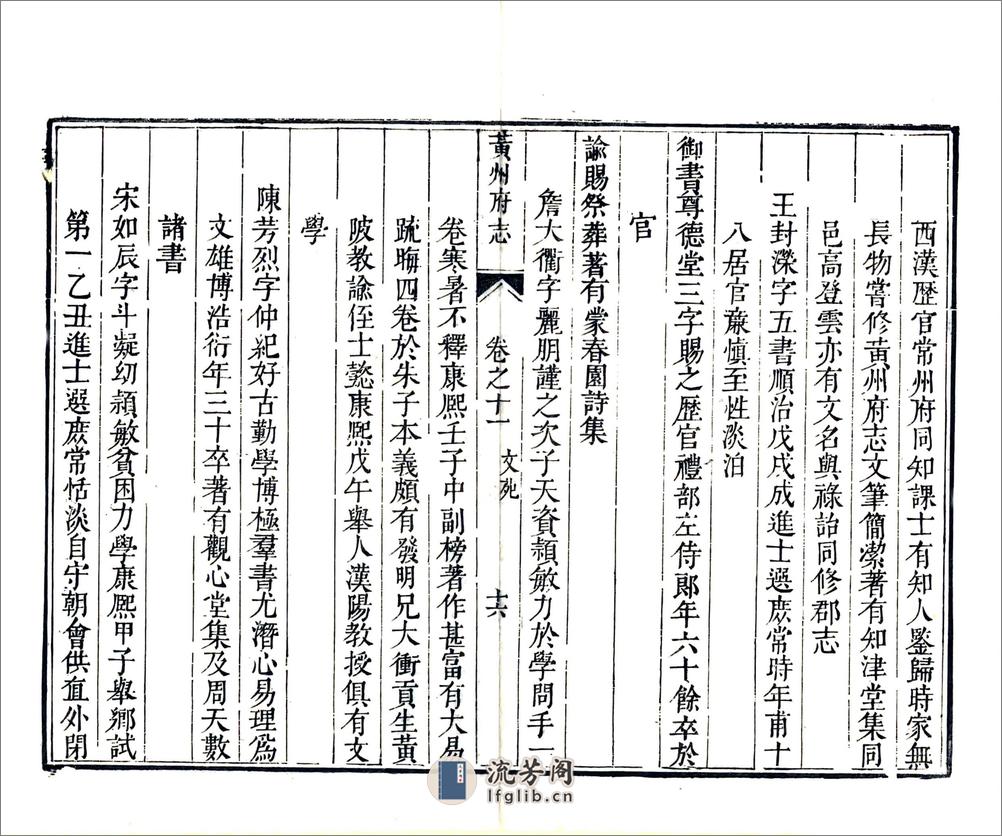 西漢歷官常州府同知課士有知人鑒歸時家無
長物嘗修黃州府志文筆簡潔著有知津堂集同
邑高登雲亦有文名與祿詒同修郡志
王封濚字五書順治戊戌成進士選庶常時年甫十
八居官廉慎至性淡泊
御書尊德堂三字賜之歷官禮部左侍郎年六十餘卒於
官
諭賜祭葬著有蒙春園詩集
詹大衢字麗朋謹之次子天資穎敏力於學問手一
黃州府志
卷之十一
文苑
十六
卷寒暑不釋康熙壬子中副榜著作甚富有大易
疏晦四卷於朱子本義頗有發明兄大衝貢生黃
陂教諭侄士懿康熙戊午舉人漢陽教授俱有文
學
陳芳烈字仲紀好古勤學博極羣書尤潛心易理為
文雄博浩衍年三十卒著有觀心堂集及周天數
諸書
宋如辰字斗凝幼穎敏貧困力學康熙甲子舉鄉試
第一乙丑進士選庶常恬淡自守朝會供直外閉
流芳阁
lfglib.cn